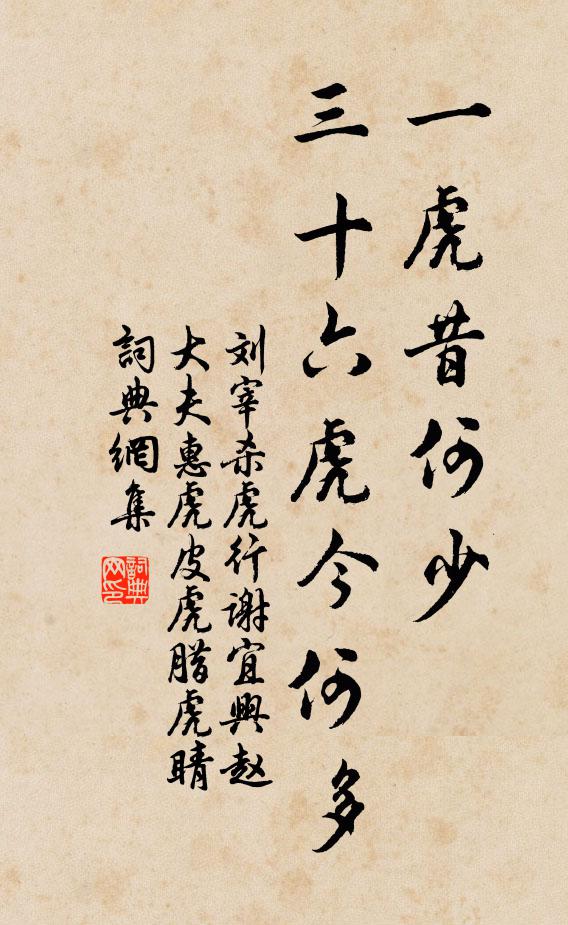 一虎昔何少
三十六虎今何多
刘宰杀虎行谢宜興赵
大夫惠虎皮虎腊虎睛
詞典網集
詞典网印